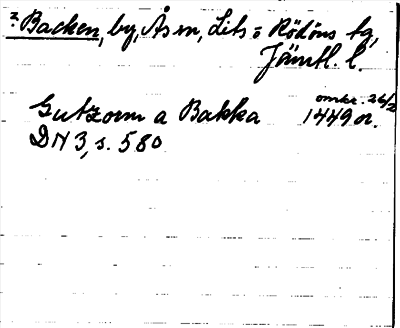 z Backen, by, Ås sn, Lits o Rödöns tg,
Jämtl. l.
omkr. 26/2
Gutzorm a Bakka 1449 or.
DN 3, s. 580